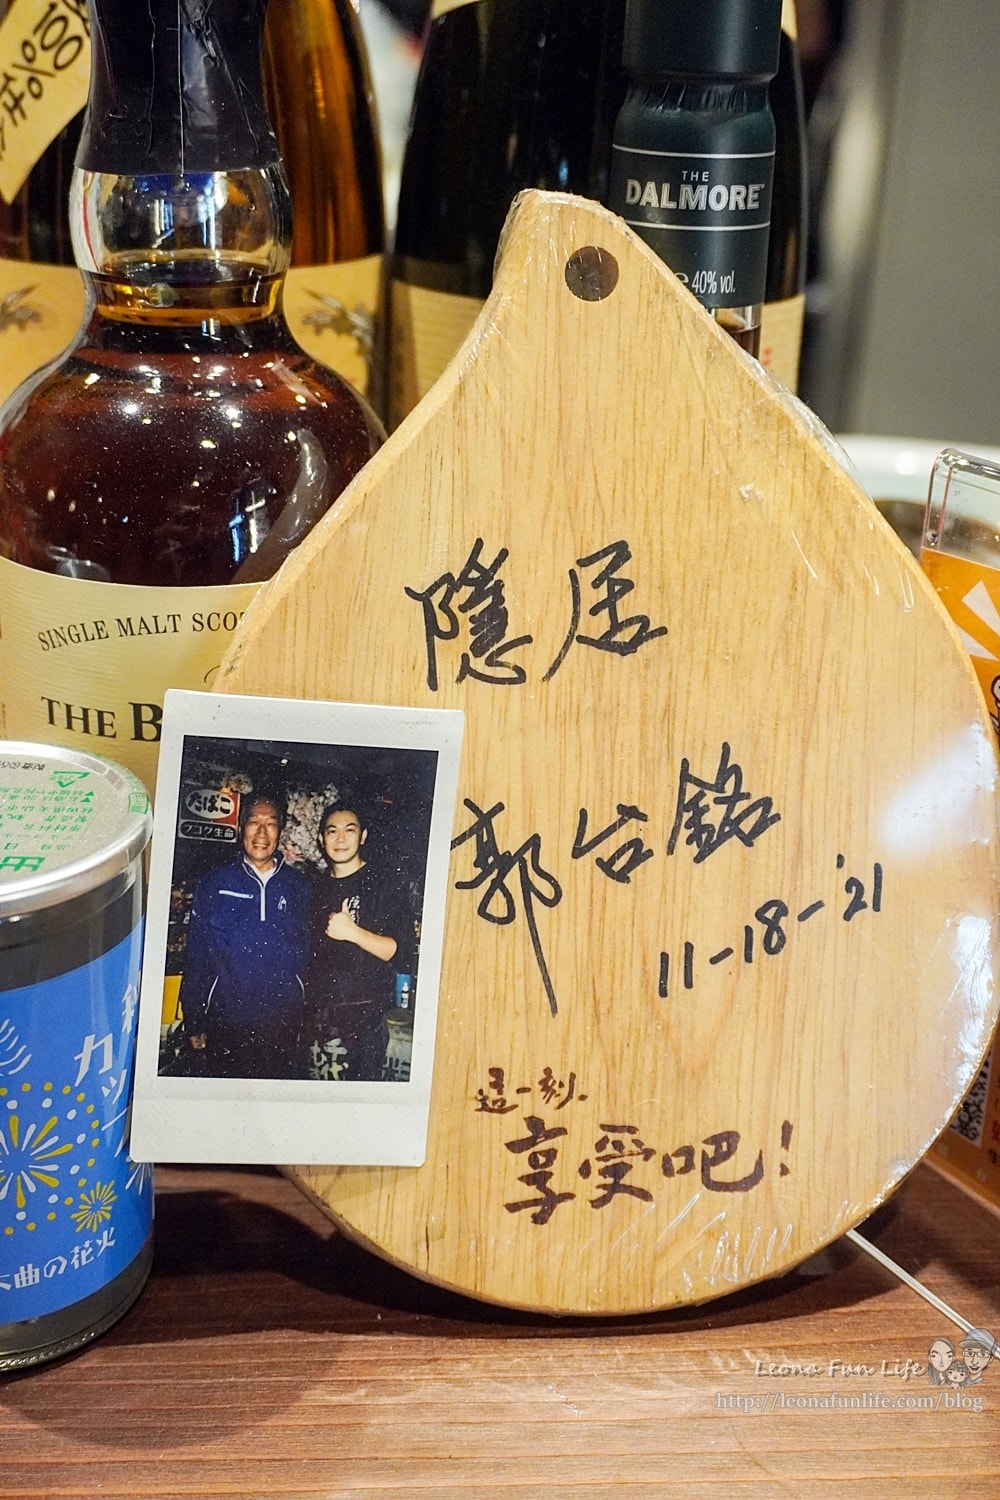 100%
THE
DALMORE
40% vol.
隱居
SINGLE MALT SCOT
THE B
郭台銘
11-18-'21
たばこ
フコク生命
這一刻.
享受吧!
カップ
大曲の花火
Leona Fun Life
http://leonafunlife.com/blog